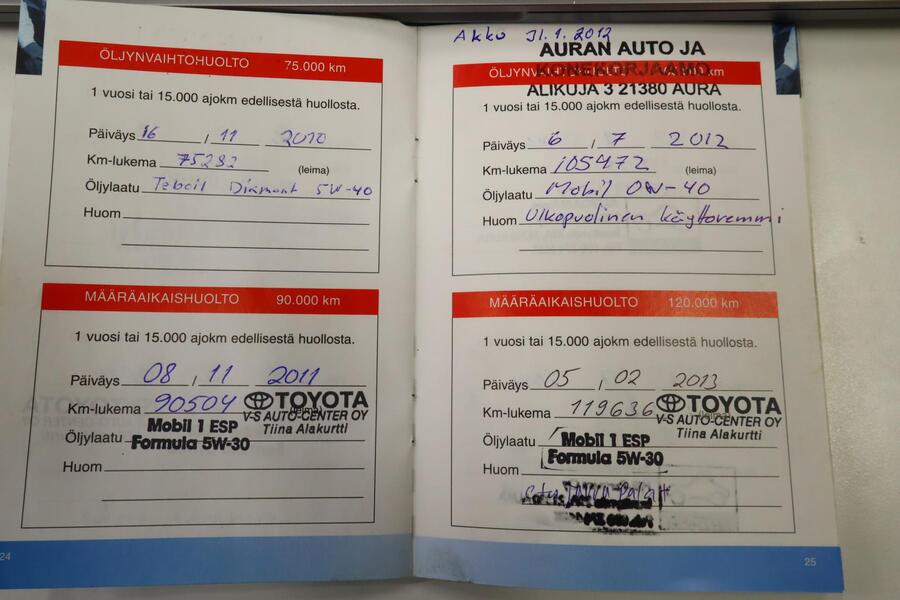 ÖLJYNVAIHTOHUOLTO 75.000 km
1 vuosi tai 15.000 ajokm edellisestä huollosta.
Päiväys 16 / 11 2010
Km-lukema 75282 (leima)
Öljylaatu Teboil Diamont 5W-40
Huom
MÄÄRÄAIKAISHUOLTO 90.000 km
1 vuosi tai 15.000 ajokm edellisestä huollosta.
Päiväys 08 / 11 2011
Km-lukema 90504 (leima) TOYOTA
V-S AUTO-CENTER OY
Tiina Alakurtti
Öljylaatu Mobil 1 ESP
Formula 5W-30
Huom
24
Akku 31.1.2012
AURAN AUTO JA
KONEKORJAAMO
ÖLJYNVAIHTOHUOLTO km
ALIKUJA 3 21380 AURA
1 vuosi tai 15.000 ajokm edellisestä huollosta.
Päiväys 6 / 7 2012
Km-lukema 105472 (leima)
Öljylaatu Mobil 0W-40
Huom Ulkopuolinen käyttoremmi
MÄÄRÄAIKAISHUOLTO 120.000 km
1 vuosi tai 15.000 ajokm edellisestä huollosta.
Päiväys 05 / 02 2013
Km-lukema 119636 (leima) TOYOTA
V-S AUTO-CENTER OY
Tiina Alakurtti
Öljylaatu Mobil 1 ESP
Formula 5W-30
Huom
25